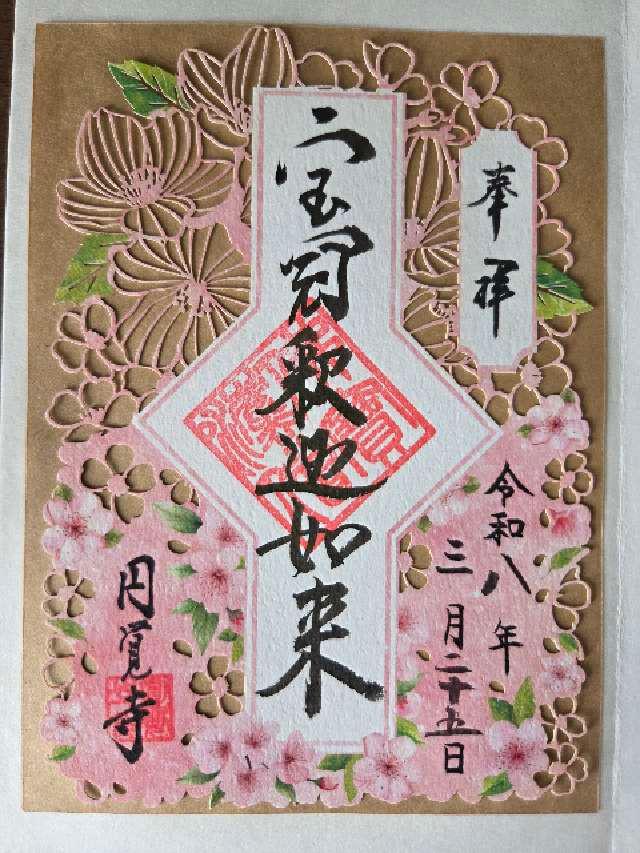 奉拝
令和八年
三月二十五日
宝冠釈迦如来
円覚寺